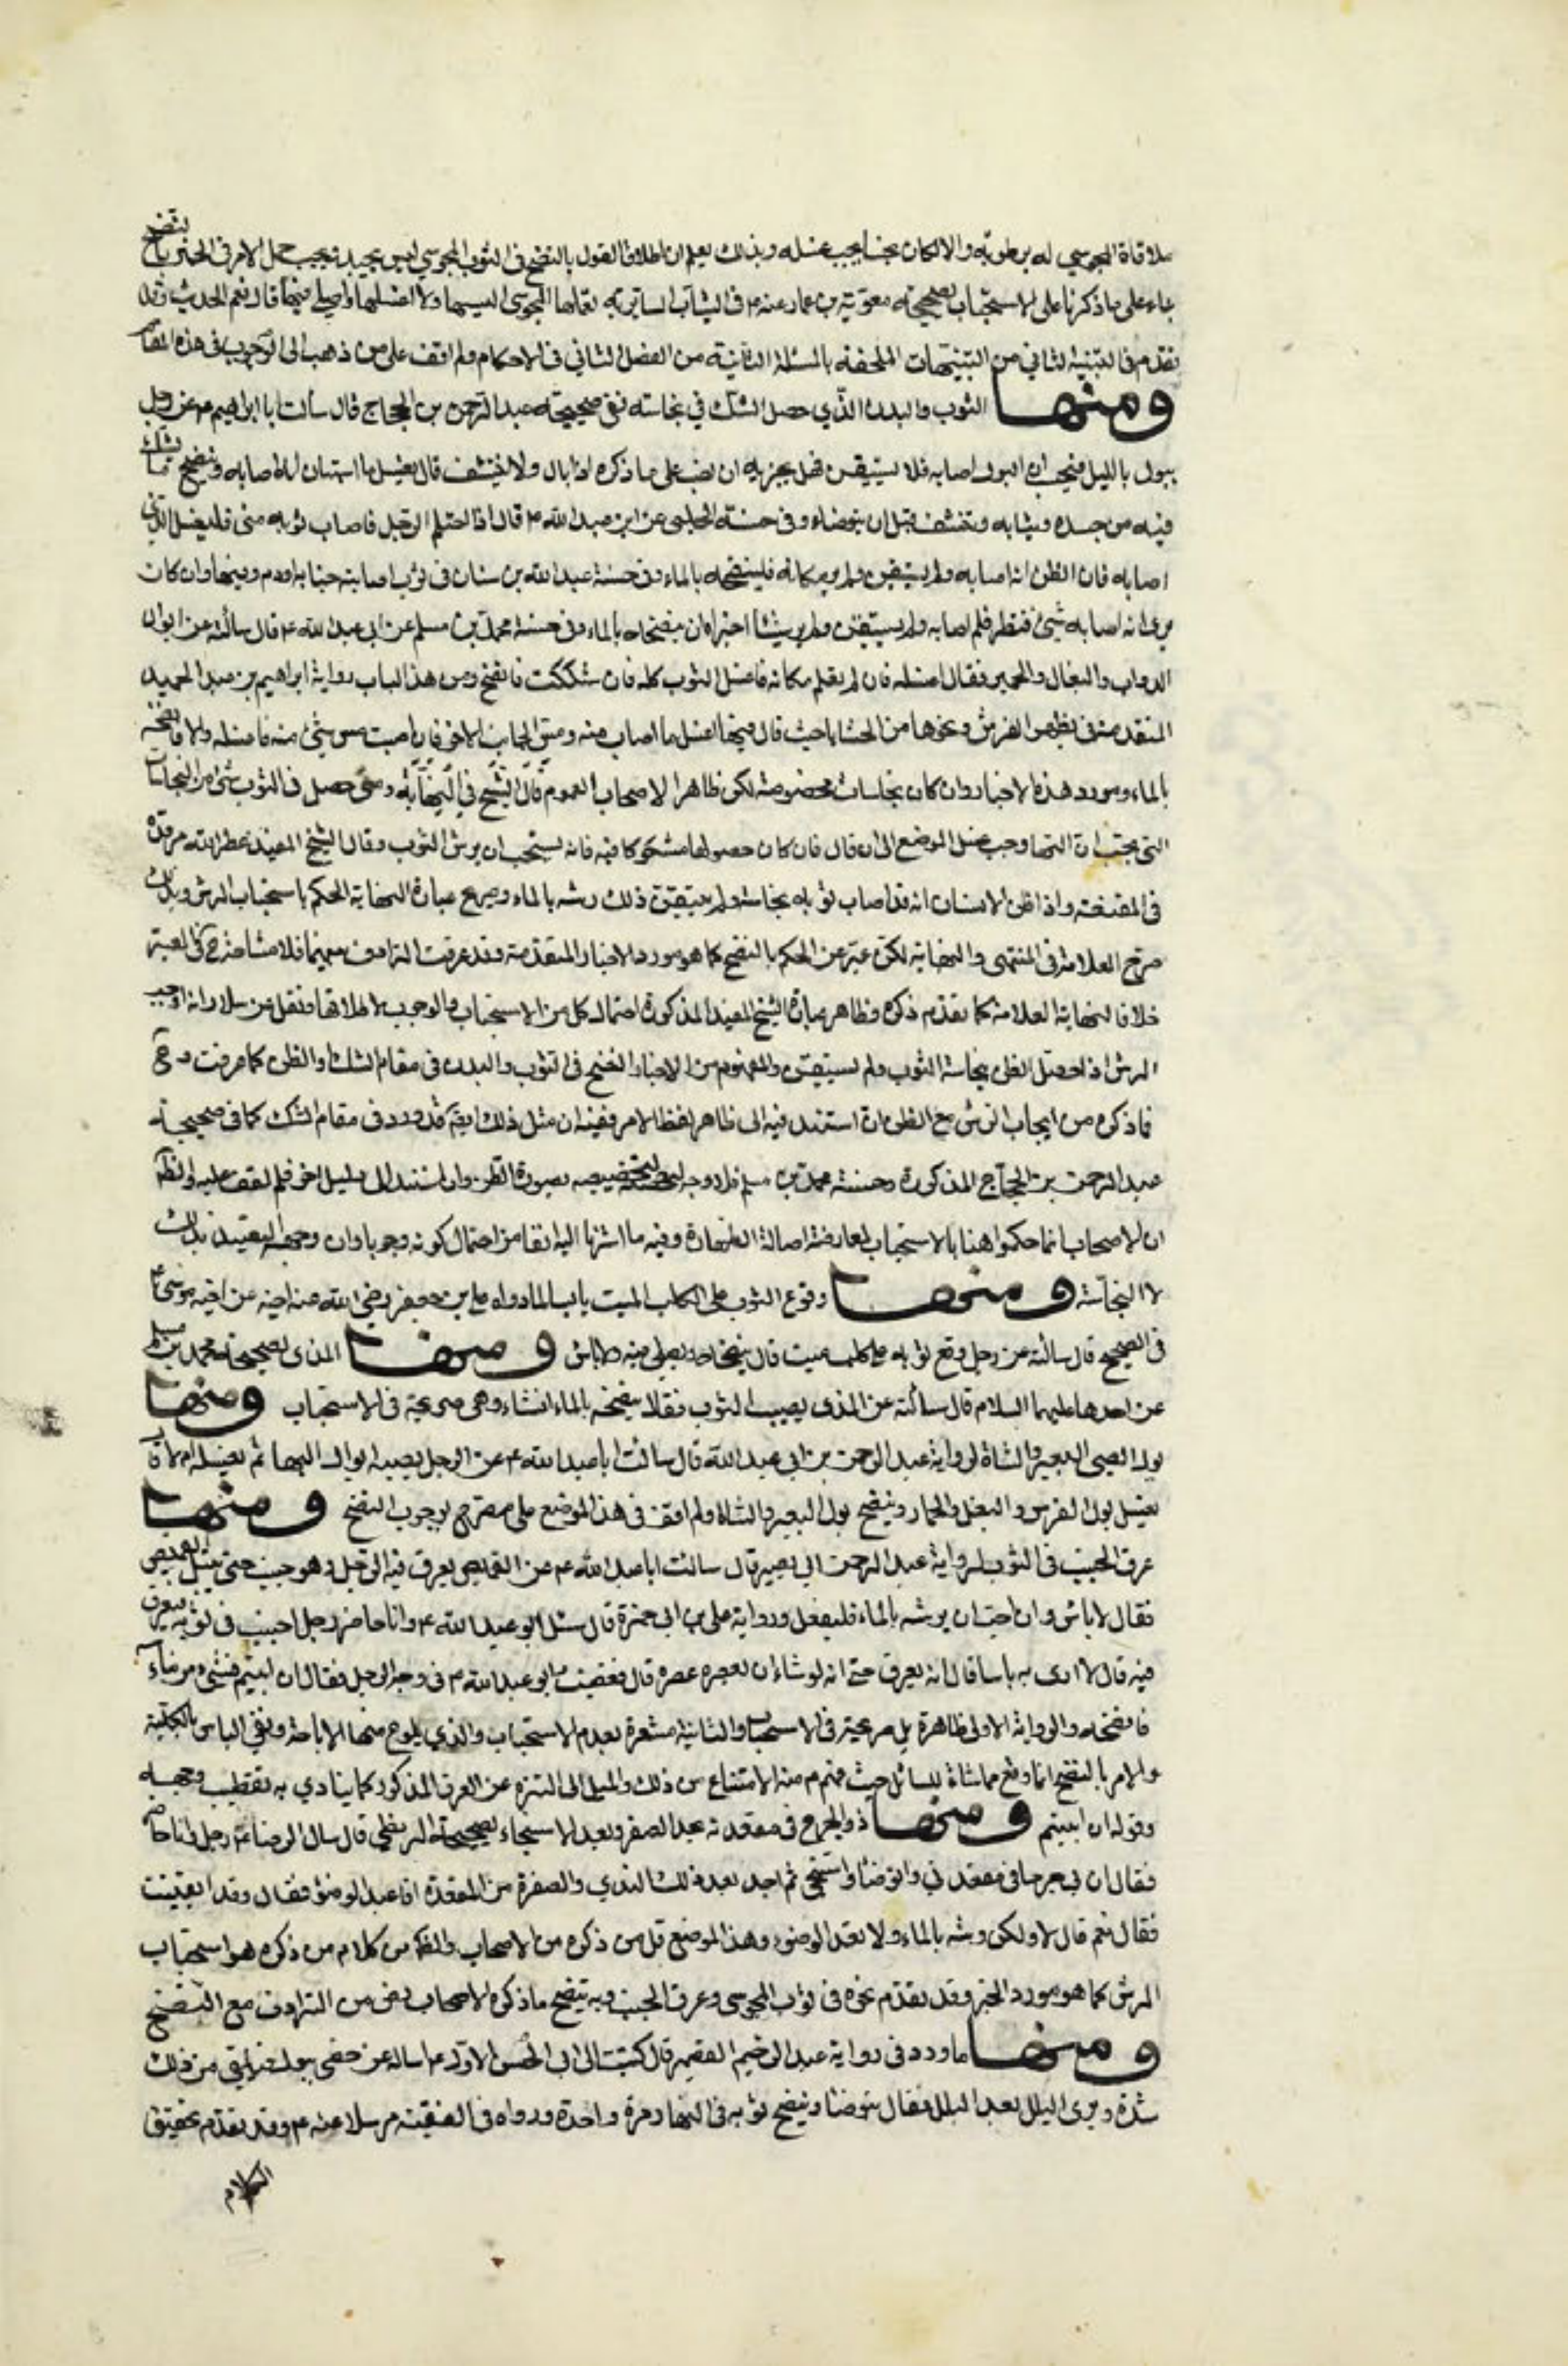 ملاقاة المجوسي له برطوبة والا لكان نجسا يجب غسله وبذلك يعلم ان اطلاق القول بالنضح في الثوب المجوسي ليس بجيد فيجب حمل الامر في الخبر بالنضح
بناء على ما ذكرنا على الاستحباب لصحيحة معوية بن عمار عنه ع في الثياب السابرية يعملها المجوسي البسها ولا اغسلها واصلي فيها قال نعم الحديث وقد
تقدم في التنبيه الثاني من التنبيهات الملحقة بالمسئلة الثانية من الفصل الثاني في الاحكام ولم اقف على من ذهب الى الوجوب في هذه المقام
ومنها الثوب والبدن الذي حصل الشك في نجاسته ففي صحيحة عبد الرحمن بن الحجاج قال سألت ابا ابراهيم ع عن رجل
يبول بالليل فيحسب ان البول اصابه فلا يستيقن فهل يجزيه ان يصب على ذكره اذا بال ولا يتنشف قال يغسل ما استبان انه اصابه وينضح ما يشك
فيه من جسده وثيابه ويتنشف قبل ان يتوضاء وفي حسنة الحلبي عن ابي عبد الله ع قال اذا احتلم الرجل فاصاب ثوبه مني فليغسل الذي
اصابه فان الظن انه اصابه ولم يستيقن ولم ير مكانه فلينضحه بالماء وفي حسنة عبد الله بن سنان في ثوب اصابته جنابة او دم وفيها وان كان
يرى انه اصابه شيئ فنظر فلم اصابه ولم يستيقن ولم ير شيئا اجزاه ان ينضحه بالماء وفي حسنة محمد بن مسلم عن ابي عبد الله ع قال سألته عن ابوال
الدواب والبغال والحمير فقال اغسله فان لم تعلم مكانه فاغسل الثوب كله فان شككت فانضح ومن هذا الباب رواية ابراهيم بن عبد الحميد
المتقدمة في الفرش ونحوها من الحشايا حيث قال فيها اغسل ما اصاب منه ومس الجانب الاخر فان اصبت مس شيئ منه فاغسله والا فانضحه
بالماء ومورد هذه الاخبار وان كان نجاسات مخصوصة لكن ظاهر الاصحاب العموم قال الشيخ في النهاية ومتى حصل في الثوب شيئ من النجاسات
التي يجب ازالتها وجب غسل الموضع الى ان قال فان كان حصولها مشكوكا فيه فانه يستحب ان يرش الثوب وقال الشيخ المفيد عطر الله مرقده
في المقنعة واذا ظن الانسان انه قد اصاب ثوبه نجاسة ولم يتيقن ذلك رشه بالماء وصريح عبارة النهاية الحكم باستحباب الرش وبذلك
صرح العلامة في المنتهى والنهاية لكن عبر عن الحكم بالنضح كما هو مورد الاخبار المتقدمة وقد عرفت الترادف بينهما فلا مشاحة في التعبير
خلافا لنهاية العلامة كما تقدم ذكره وظاهر عبارة الشيخ المفيد المذكورة احتمال كل من الاستحباب والوجوب لاطلاقها ونقل عن سلار انه اوجب
الرش اذا حصل الظن بنجاسة الثوب ولم يستيقن والمفهوم من الاخبار النضح في الثوب والبدن في مقام الشك والظن كما عرفت وح
فما ذكره من ايجاب الرش مع الظن ان استند فيه الى ظاهر لفظ الامر ففيه ان مثل ذلك ايضا قد ورد في مقام الشك كما في صحيحة
عبد الرحمن بن الحجاج المذكورة وحسنة محمد بن مسلم فلا وجه لتخصيصه بصورة الظن وان استند الى دليل اخر فلم نقف عليه والظ
ان الاصحاب انما حكموا هنا بالاستحباب لمعارضة اصالة الطهارة وفيه ما اشرنا اليه انفا من احتمال كونه وجوبا وان وجهه التعبد بذلك
لا النجاسة ومنها وقوع الثوب على الكلب الميت يابسا لما رواه علي بن جعفر رضي الله عنه عن اخيه موسى ع
في الصحيح قال سألته عن رجل وقع ثوبه على كلب ميت قال ينضحه ويصلي فيه ولا باس ومنها المذي لصحيحة محمد بن مسلم
عن احدهما عليهما السلام قال سألته عن المذي يصيب الثوب فقال ينضحه بالماء ان شاء وهي صريحة في الاستحباب ومنها
بول البعير والشاة لرواية عبد الرحمن بن ابي عبد الله قال سألت ابا عبد الله ع عن الرجل يصيبه ابوال البهائم يغسله ام لا قال
يغسل بول الفرس والبغل والحمار وينضح بول البعير والشاة ولم اقف في هذا الموضع على مصرح بوجوب النضح ومنها
عرق الجنب في الثوب لرواية عبد الرحمن ابي بصير قال سألت ابا عبد الله ع عن القميص يعرق فيه الرجل وهو جنب حتى يبتل القميص
فقال لا باس وان احب ان يرشه بالماء فليفعل ورواية علي بن ابي حمزة قال سئل ابو عبد الله ع وانا حاضر رجل اجنب في ثوبه فيعرق
فيه قال لا ارى به باسا قال انه يعرق حتى انه لو شاء ان يعصره عصره قال فقطب ابو عبد الله ع في وجه الرجل فقال ان ابيتم فشيئ من ماء
فانضحه والرواية الاولى ظاهرة بل صريحة في الاستحباب والثانية مشعرة بعدم الاستحباب والذي يلوح منها الاباحة ونفي الباس بالكلية
والامر بالنضح انما وقع مماشاة للسائل حيث فهم ع منه الامتناع من ذلك والميل الى التنزه عن العرق المذكور كما ينادي به تقطيب وجهه
وقوله ان ابيتم ومنها ذو الجرح في مقعدته يجد الصفرة بعد الاستنجاء لصحيحة البزنطي قال سال الرضا ع رجل وانا حاضر
فقال ان بي جرحا في مقعدتي واتوضأ واستنجي ثم اجد بعد ذلك الندي والصفرة من المقعدة افاعيد الوضوء فقال وقد انقيت
فقال نعم قال لا ولكن رشه بالماء ولا تعد الوضوء وهذا الموضع قل من ذكره من الاصحاب والمفهوم من كلام من ذكره هو استحباب
الرش كما هو مورد الخبر وقد تقدم نحوه في ثوب المجوسي وعرق الجنب وبه يتضح ما ذكره الاصحاب رض من الترادف مع النضح
ومنها ما ورد في رواية عبد الرحيم القصير قال كتبت الى ابي الحسن الاول ع اساله عن خصي يبول فيلقى من ذلك
شدة ويرى البلل بعد البلل فقال يتوضأ وينضح ثوبه في النهار مرة واحدة ورواه في الفقيه مرسلا عنه ع وقد تقدم تحقيق
الكلام